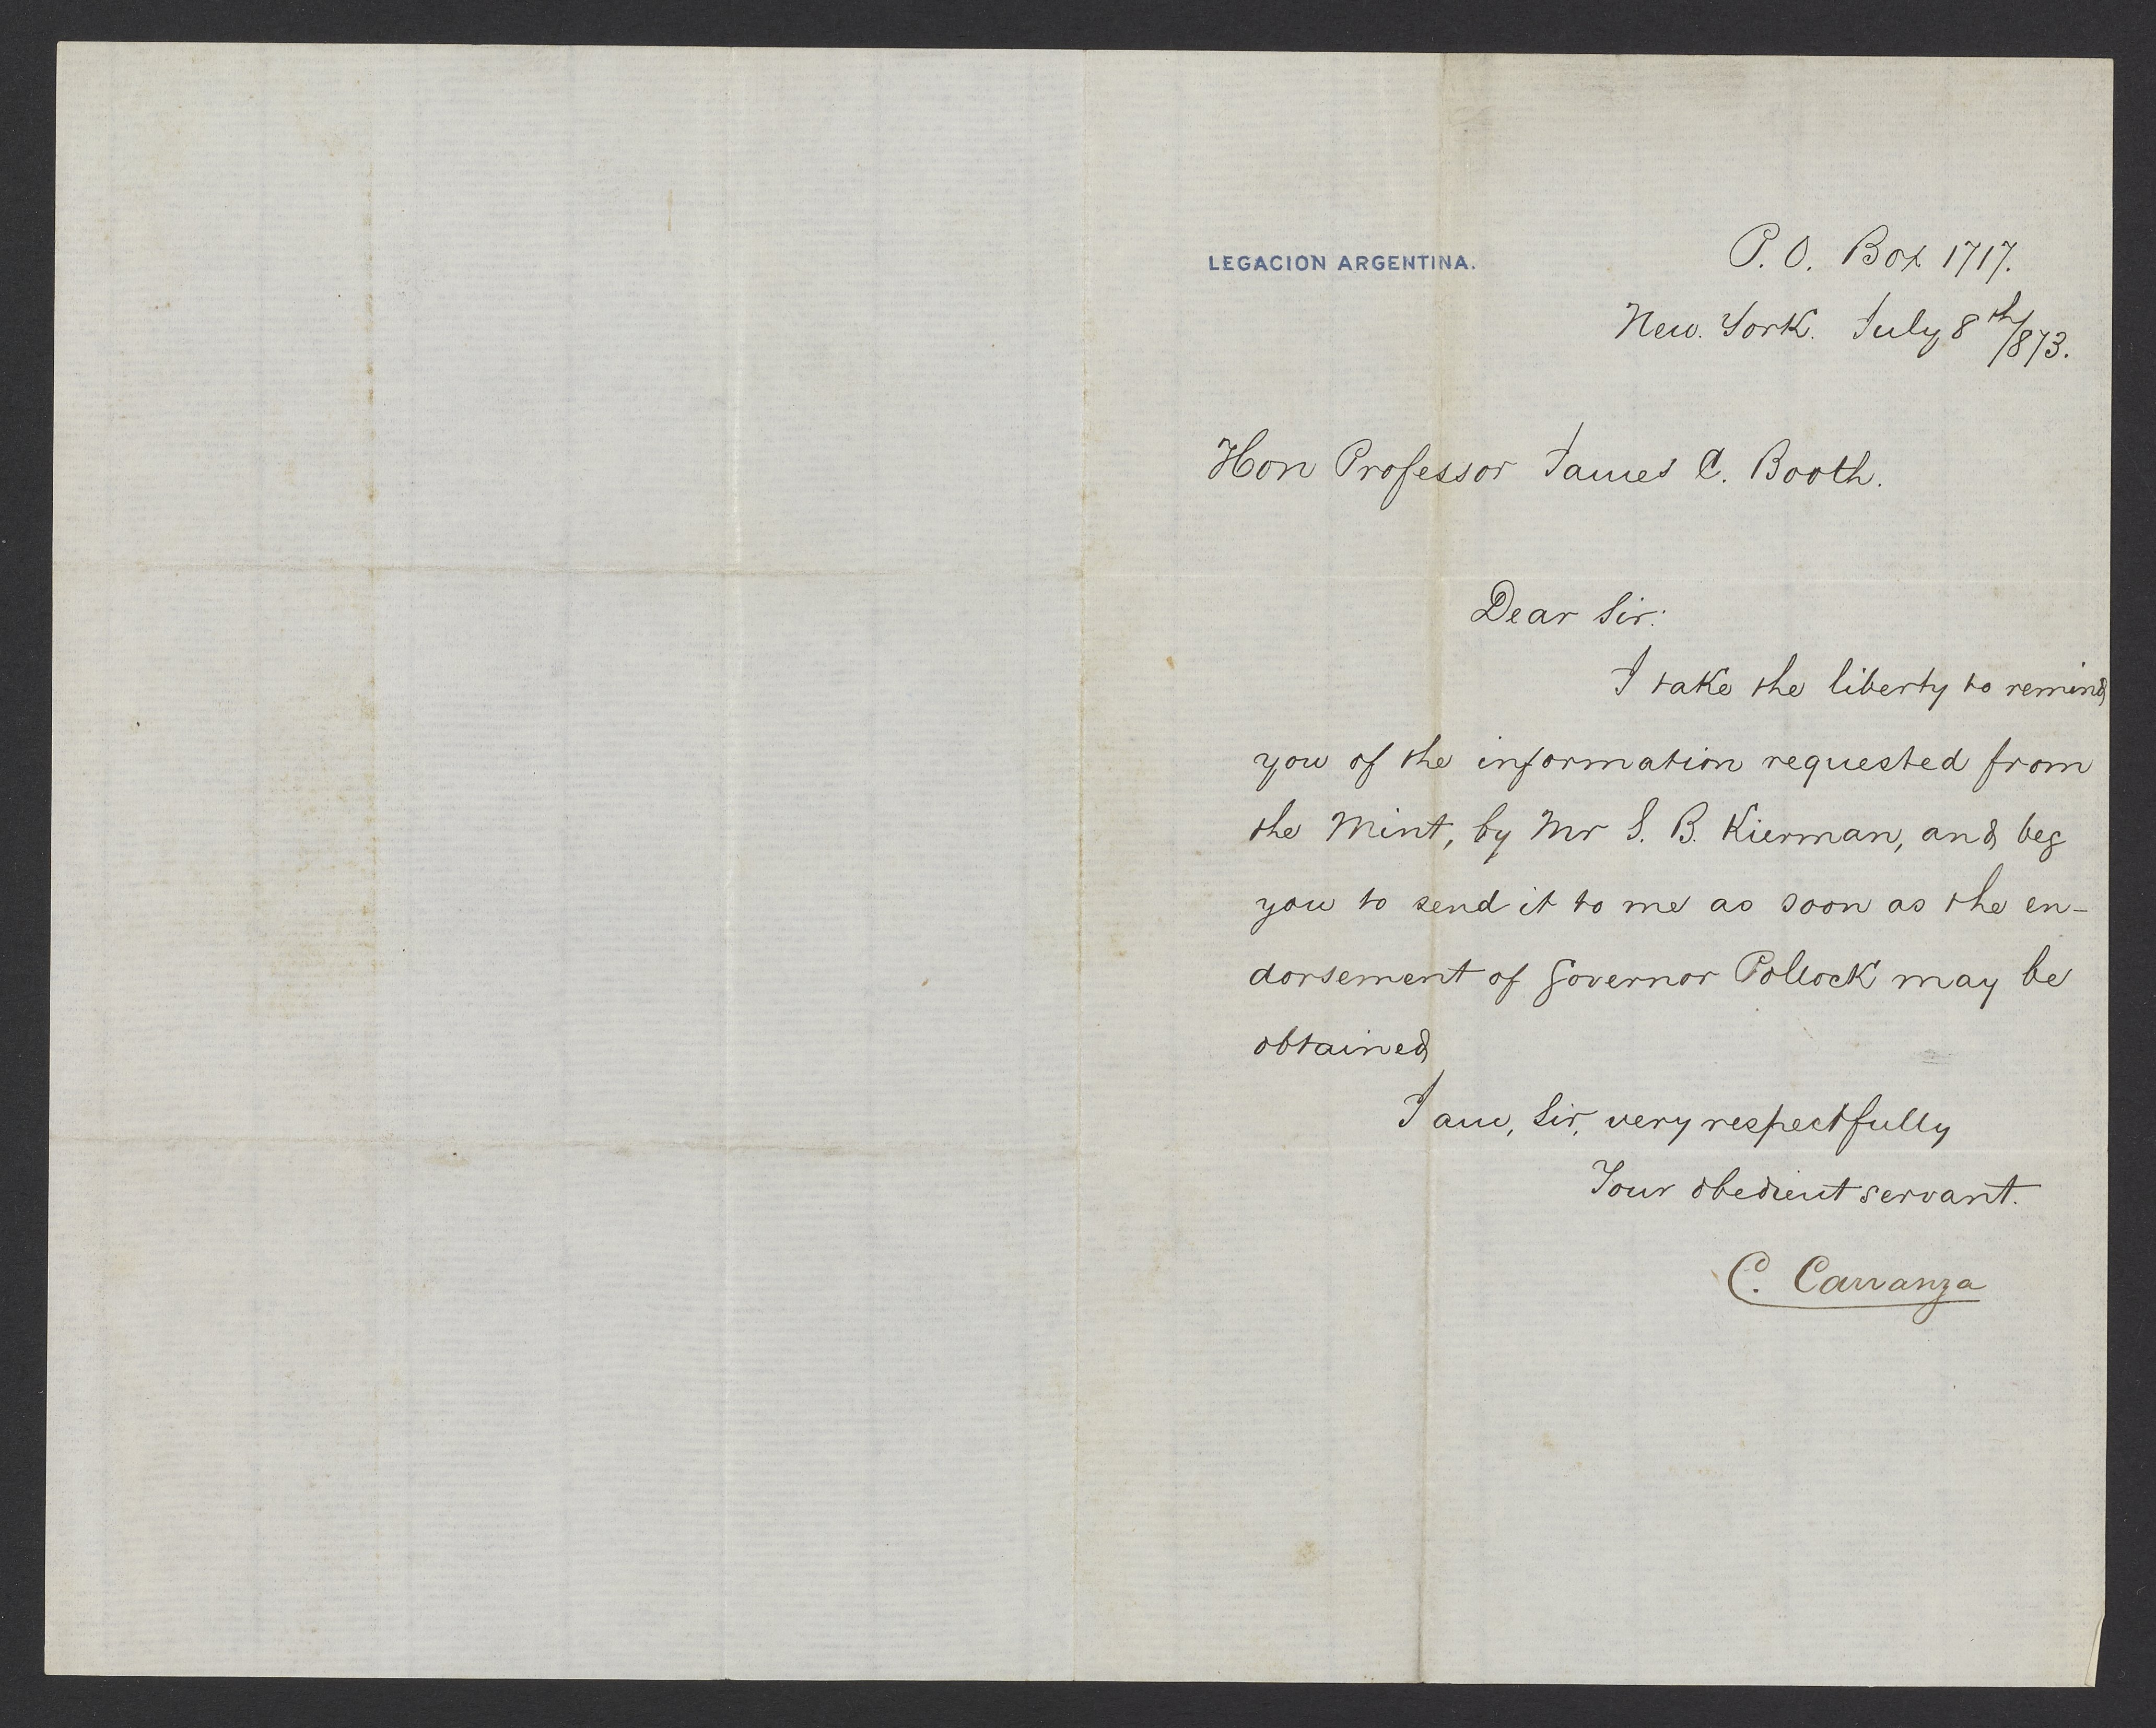 LEGACION ARGENTINA.
P. O. Box 1717.
New. York. July 8th/873.
Hon Professor James C. Booth.
Dear Sir:
I take the liberty to remind
you of the information requested from
the Mint, by Mr S. B. Kierman, and beg
you to send it to me as soon as the en-
dorsement of Governor Pollock may be
obtained
I am, Sir, very respectfully
Your obedient servant.
C. Carranza